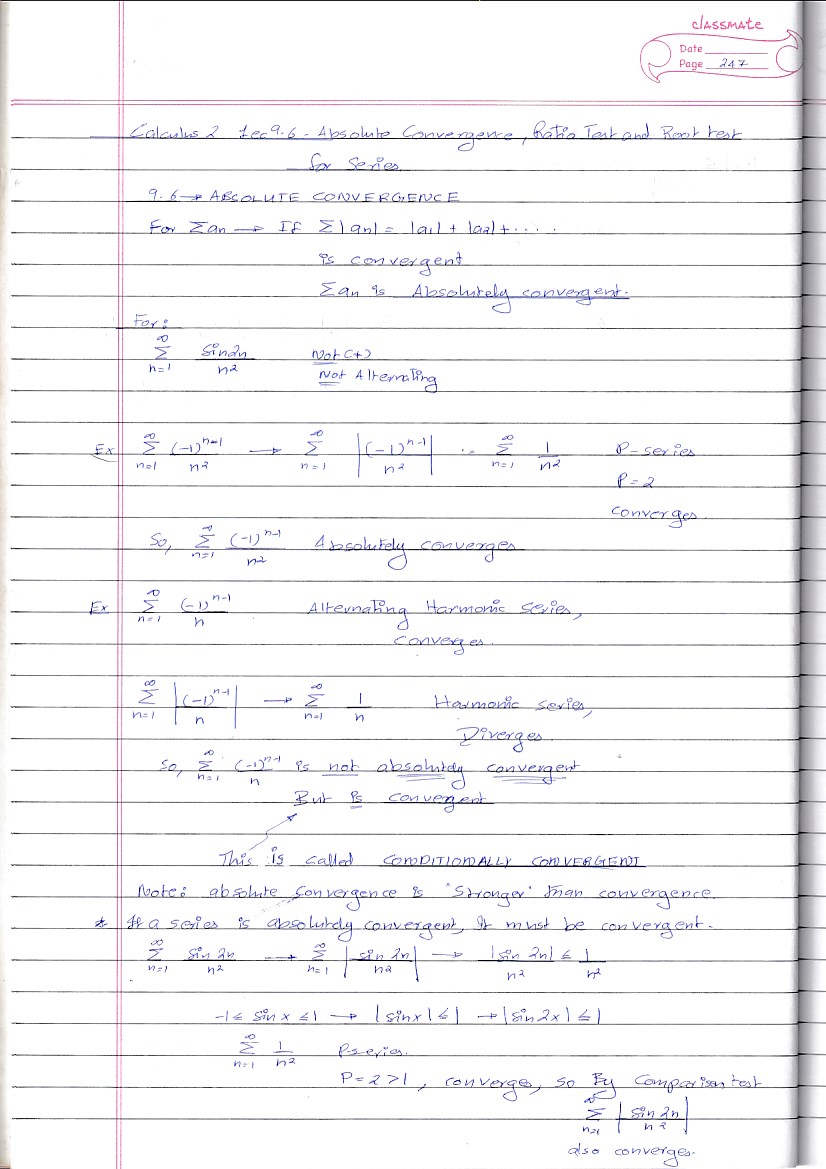 classmate
Date
Page 247
Calculus 2 Lec 9.6 - Absolute Convergence, Ratio Test and Root test
for Series.
9.6 → ABSOLUTE CONVERGENCE
For Σan → If Σ|an| = |a1| + |a2| + ....
is convergent
Σan is Absolutely convergent.
For:
∞ Σ n=1 sin2n / n² Not (+)
Not Alternating
Ex ∞ Σ n=1 (-1)^n-1 / n² → ∞ Σ n=1 |(-1)^n-1 / n²| = ∞ Σ n=1 1 / n² P-series
P=2
Converges.
So, ∞ Σ n=1 (-1)^n-1 / n² Absolutely converges
Ex ∞ Σ n=1 (-1)^n-1 / n Alternating Harmonic Series,
Converges.
∞ Σ n=1 |(-1)^n-1 / n| → ∞ Σ n=1 1 / n Harmonic series,
Diverges.
So, ∞ Σ n=1 (-1)^n-1 / n is not absolutely convergent
But is convergent
This is called CONDITIONALLY CONVERGENT
Note: absolute convergence is "Stronger" than convergence.
* If a series is absolutely convergent, It must be convergent.
∞ Σ n=1 sin 2n / n² → ∞ Σ n=1 |sin 2n / n²| → |sin 2n| / n² ≤ 1 / n²
-1 ≤ sin x ≤ 1 → |sinx| ≤ 1 → |sin2x| ≤ 1
∞ Σ n=1 1 / n² P-series.
P=2>1, converges, so By Comparison test
∞ Σ n=1 |sin 2n / n²|
also converges.